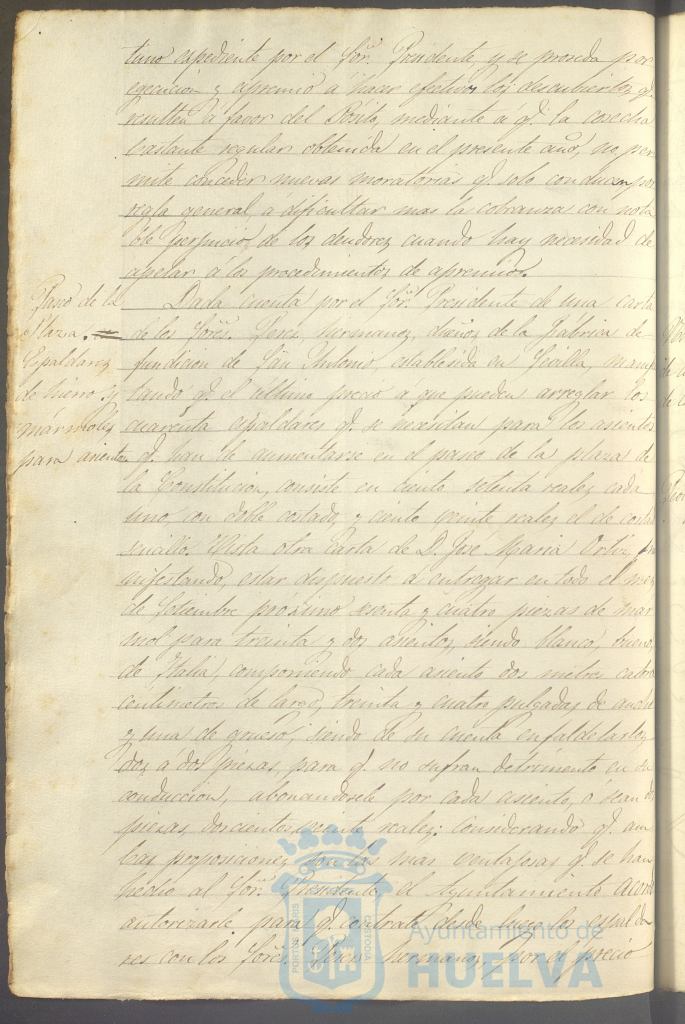 tuno expediente por el Sor. Presidente, y se proseda por
egecucion y apremio á hacer efectivos los descubiertos q.
resulten á favor del Posito, mediante á q. la cosecha
bastante regular obtenida en el presente año, no per
mite conceder nuevas moratorias q. solo conducen por
regla general, á dificultar mas la cobranza con nota
ble perjuicio de los deudores, cuando hay necesidad de
apelar á los procedimientos de apremio.
Paseo de la
Plaza.=
Espaldares
de hierro y
mármoles
para asientos
Dada cuenta por el Sor. Presidente de una carta
de los Sores. Perez, hermanos, dueños de la Fábrica de
fundicion de San Antonio, establesida en Sevilla, manifes
tando q. el último precio a que pueden arreglar los
cuarenta espaldares q. se necesitan para los asientos
q. han de aumentarse en el paseo de la plaza de
la Constitucion, consiste en ciento setenta reales cada
uno, con doble costado, y ciento veinte reales el de costado
sencillo. Vista otra carta de D. José Maria Ortiz, ma
nifestando, estar dispuesto a entregar en todo el mes
de Setiembre próximo sesenta y cuatro piezas de mar
mol para treinta y dos asientos, siendo blanco, bueno,
de Italia, componiendo cada asiento dos metros catorce
centimetros de largo, treinta y cuatro pulgadas de ancho
y una de grueso; siendo de su cuenta enfaldelarlos
dos a dos piezas, para q. no sufran detrimento en su
conduccion, abonandosele por cada asiento, ó sean dos
piezas, doscientos veinte reales: Considerando q. am
bas proposiciones son las mas ventajosas q. se han
hecho al Sor. Presidente, el Ayuntamiento acordó
autorizarle para q. contrate desde luego los espalda
res con los Sores. Perez hermanos, por el precio
PORTUS MARIS
CUSTODIA
Ayuntamiento de
HUELVA